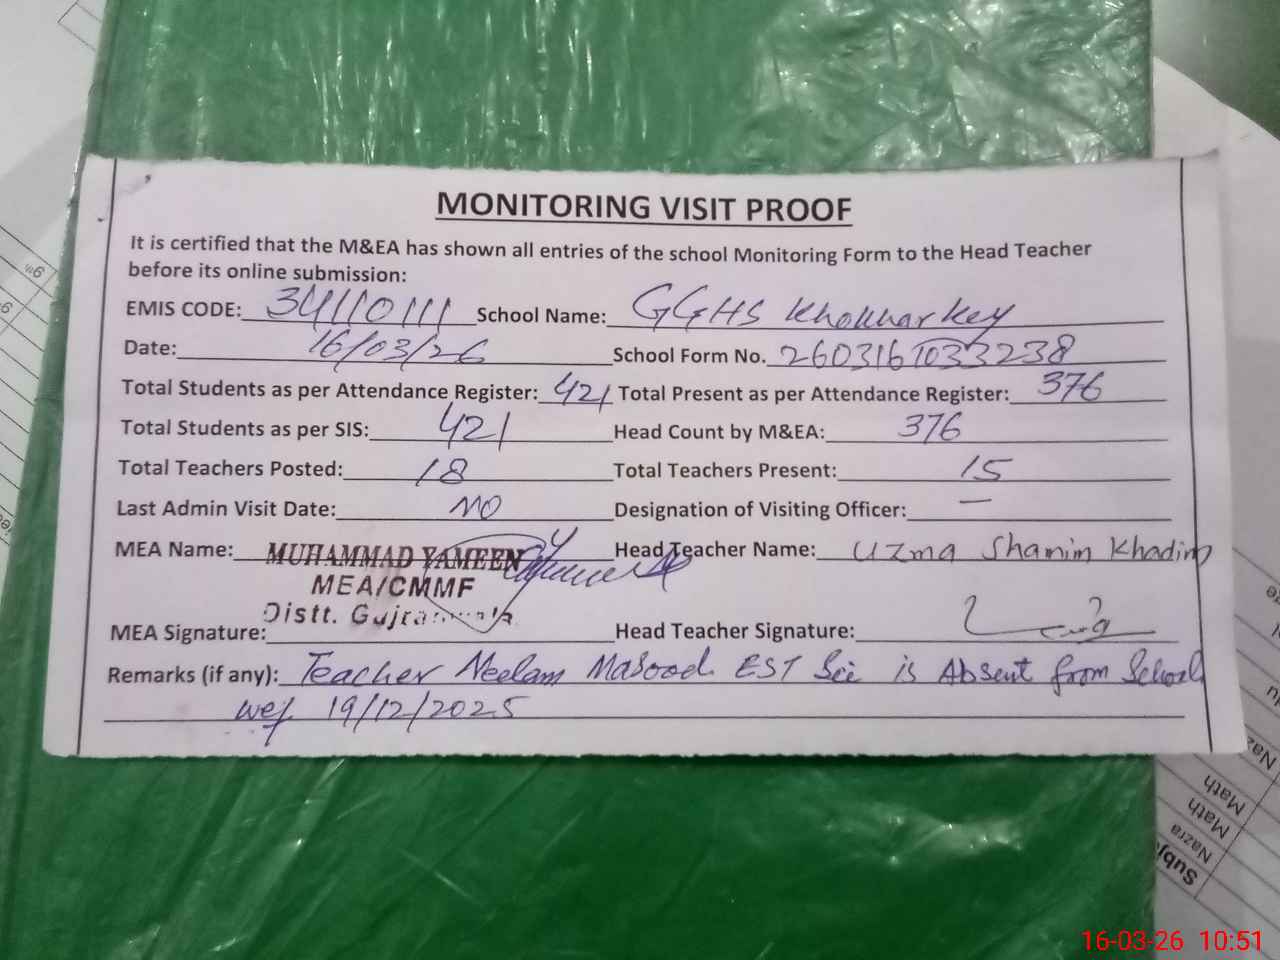 MONITORING VISIT PROOF
It is certified that the M&EA has shown all entries of the school Monitoring Form to the Head Teacher
before its online submission:
EMIS CODE: 34110111 School Name: GGHS Khokharkey
Date: 16/03/26 School Form No. 2603161033238
Total Students as per Attendance Register: 421 Total Present as per Attendance Register: 376
Total Students as per SIS: 421 Head Count by M&EA: 376
Total Teachers Posted: 18 Total Teachers Present: 15
Last Admin Visit Date: NO Designation of Visiting Officer: —
MEA Name: MUHAMMAD YAMEEN Head Teacher Name: Uzma Shamim Khadim
MEA/CMMF
Distt. Gujranwala
MEA Signature: Head Teacher Signature:
Remarks (if any): Teacher Neelam Masood EST Sci is Absent from School
wef 19/12/2025
Nazra
Math
Math
Nazra
Subj
16-03-26 10:51